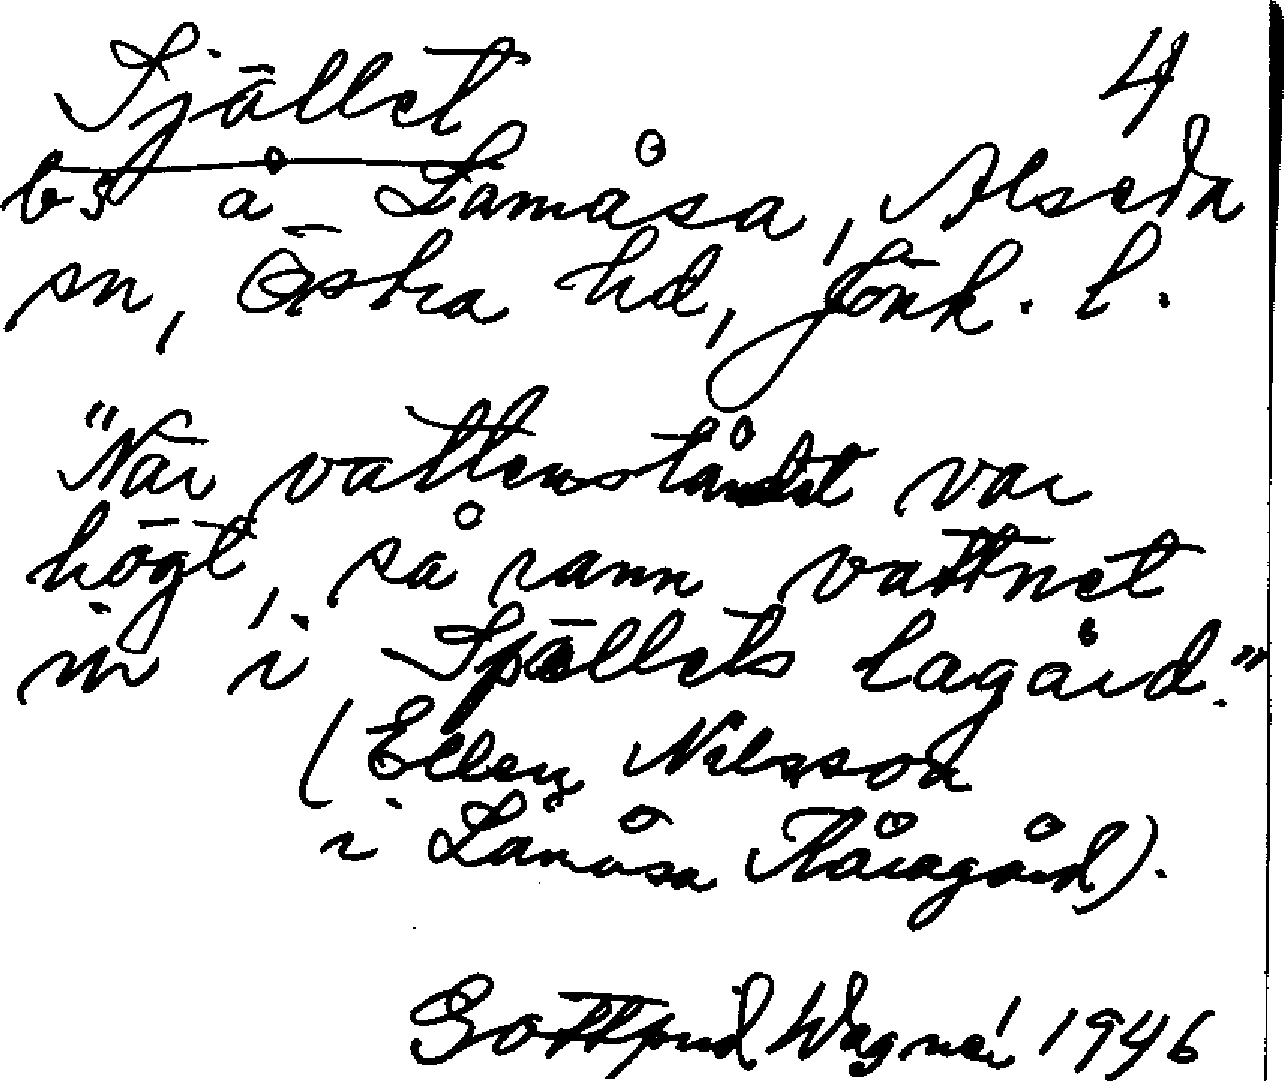 Sjället 4
bs å Lamåsa, Alseda
sn, Östra hd, Jönk. l.
"När vattenståndet var
högt, så rann vattnet
in i Själlets lagård."
(Ellen Nilsson
i Lamåsa Kåragård).
Gottfrid Wagnér 1946